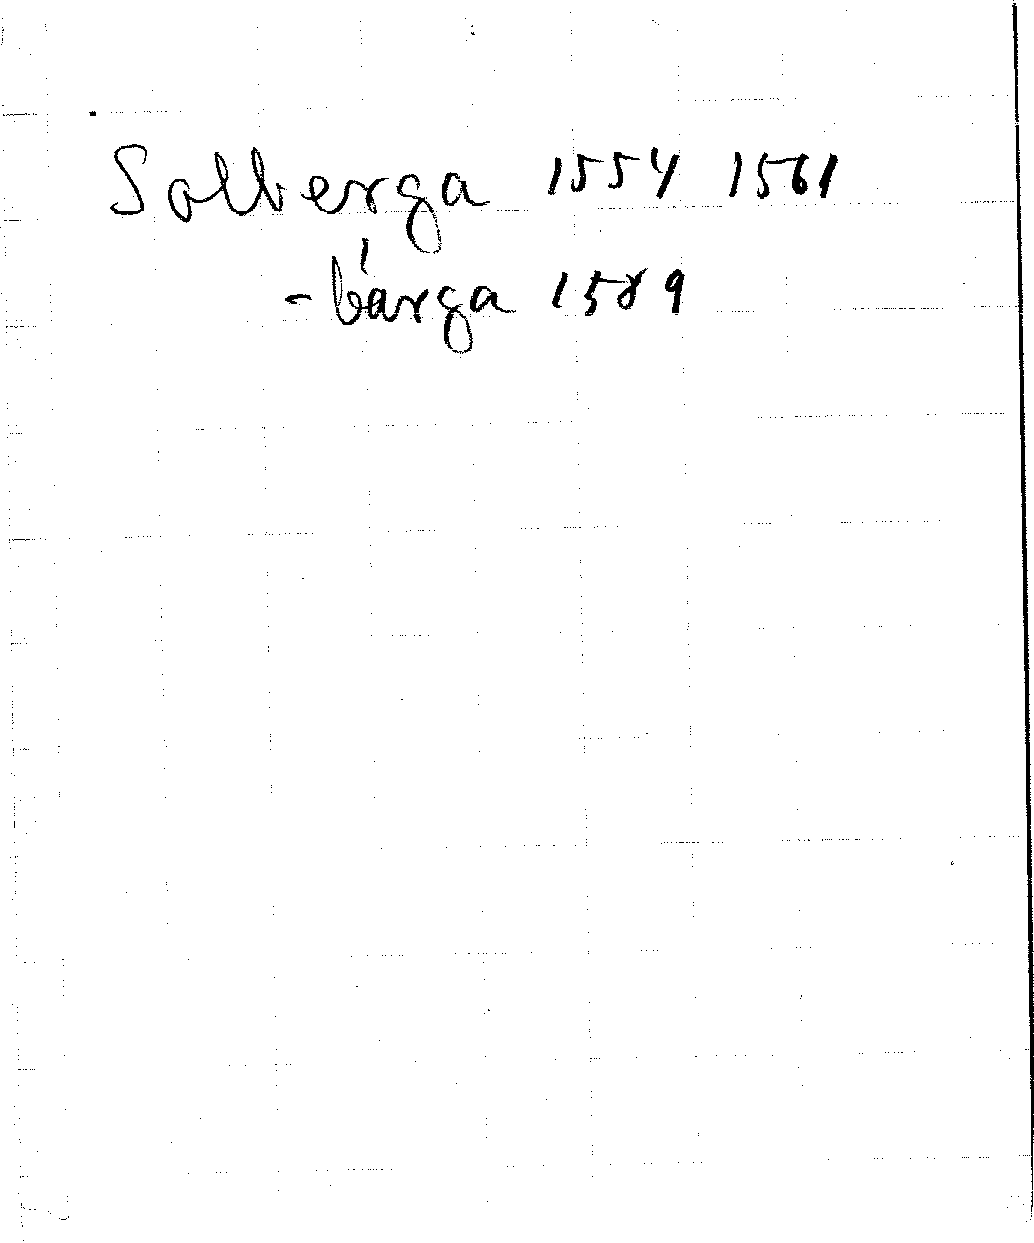 Solberga 1554 1561
- bárga 1589